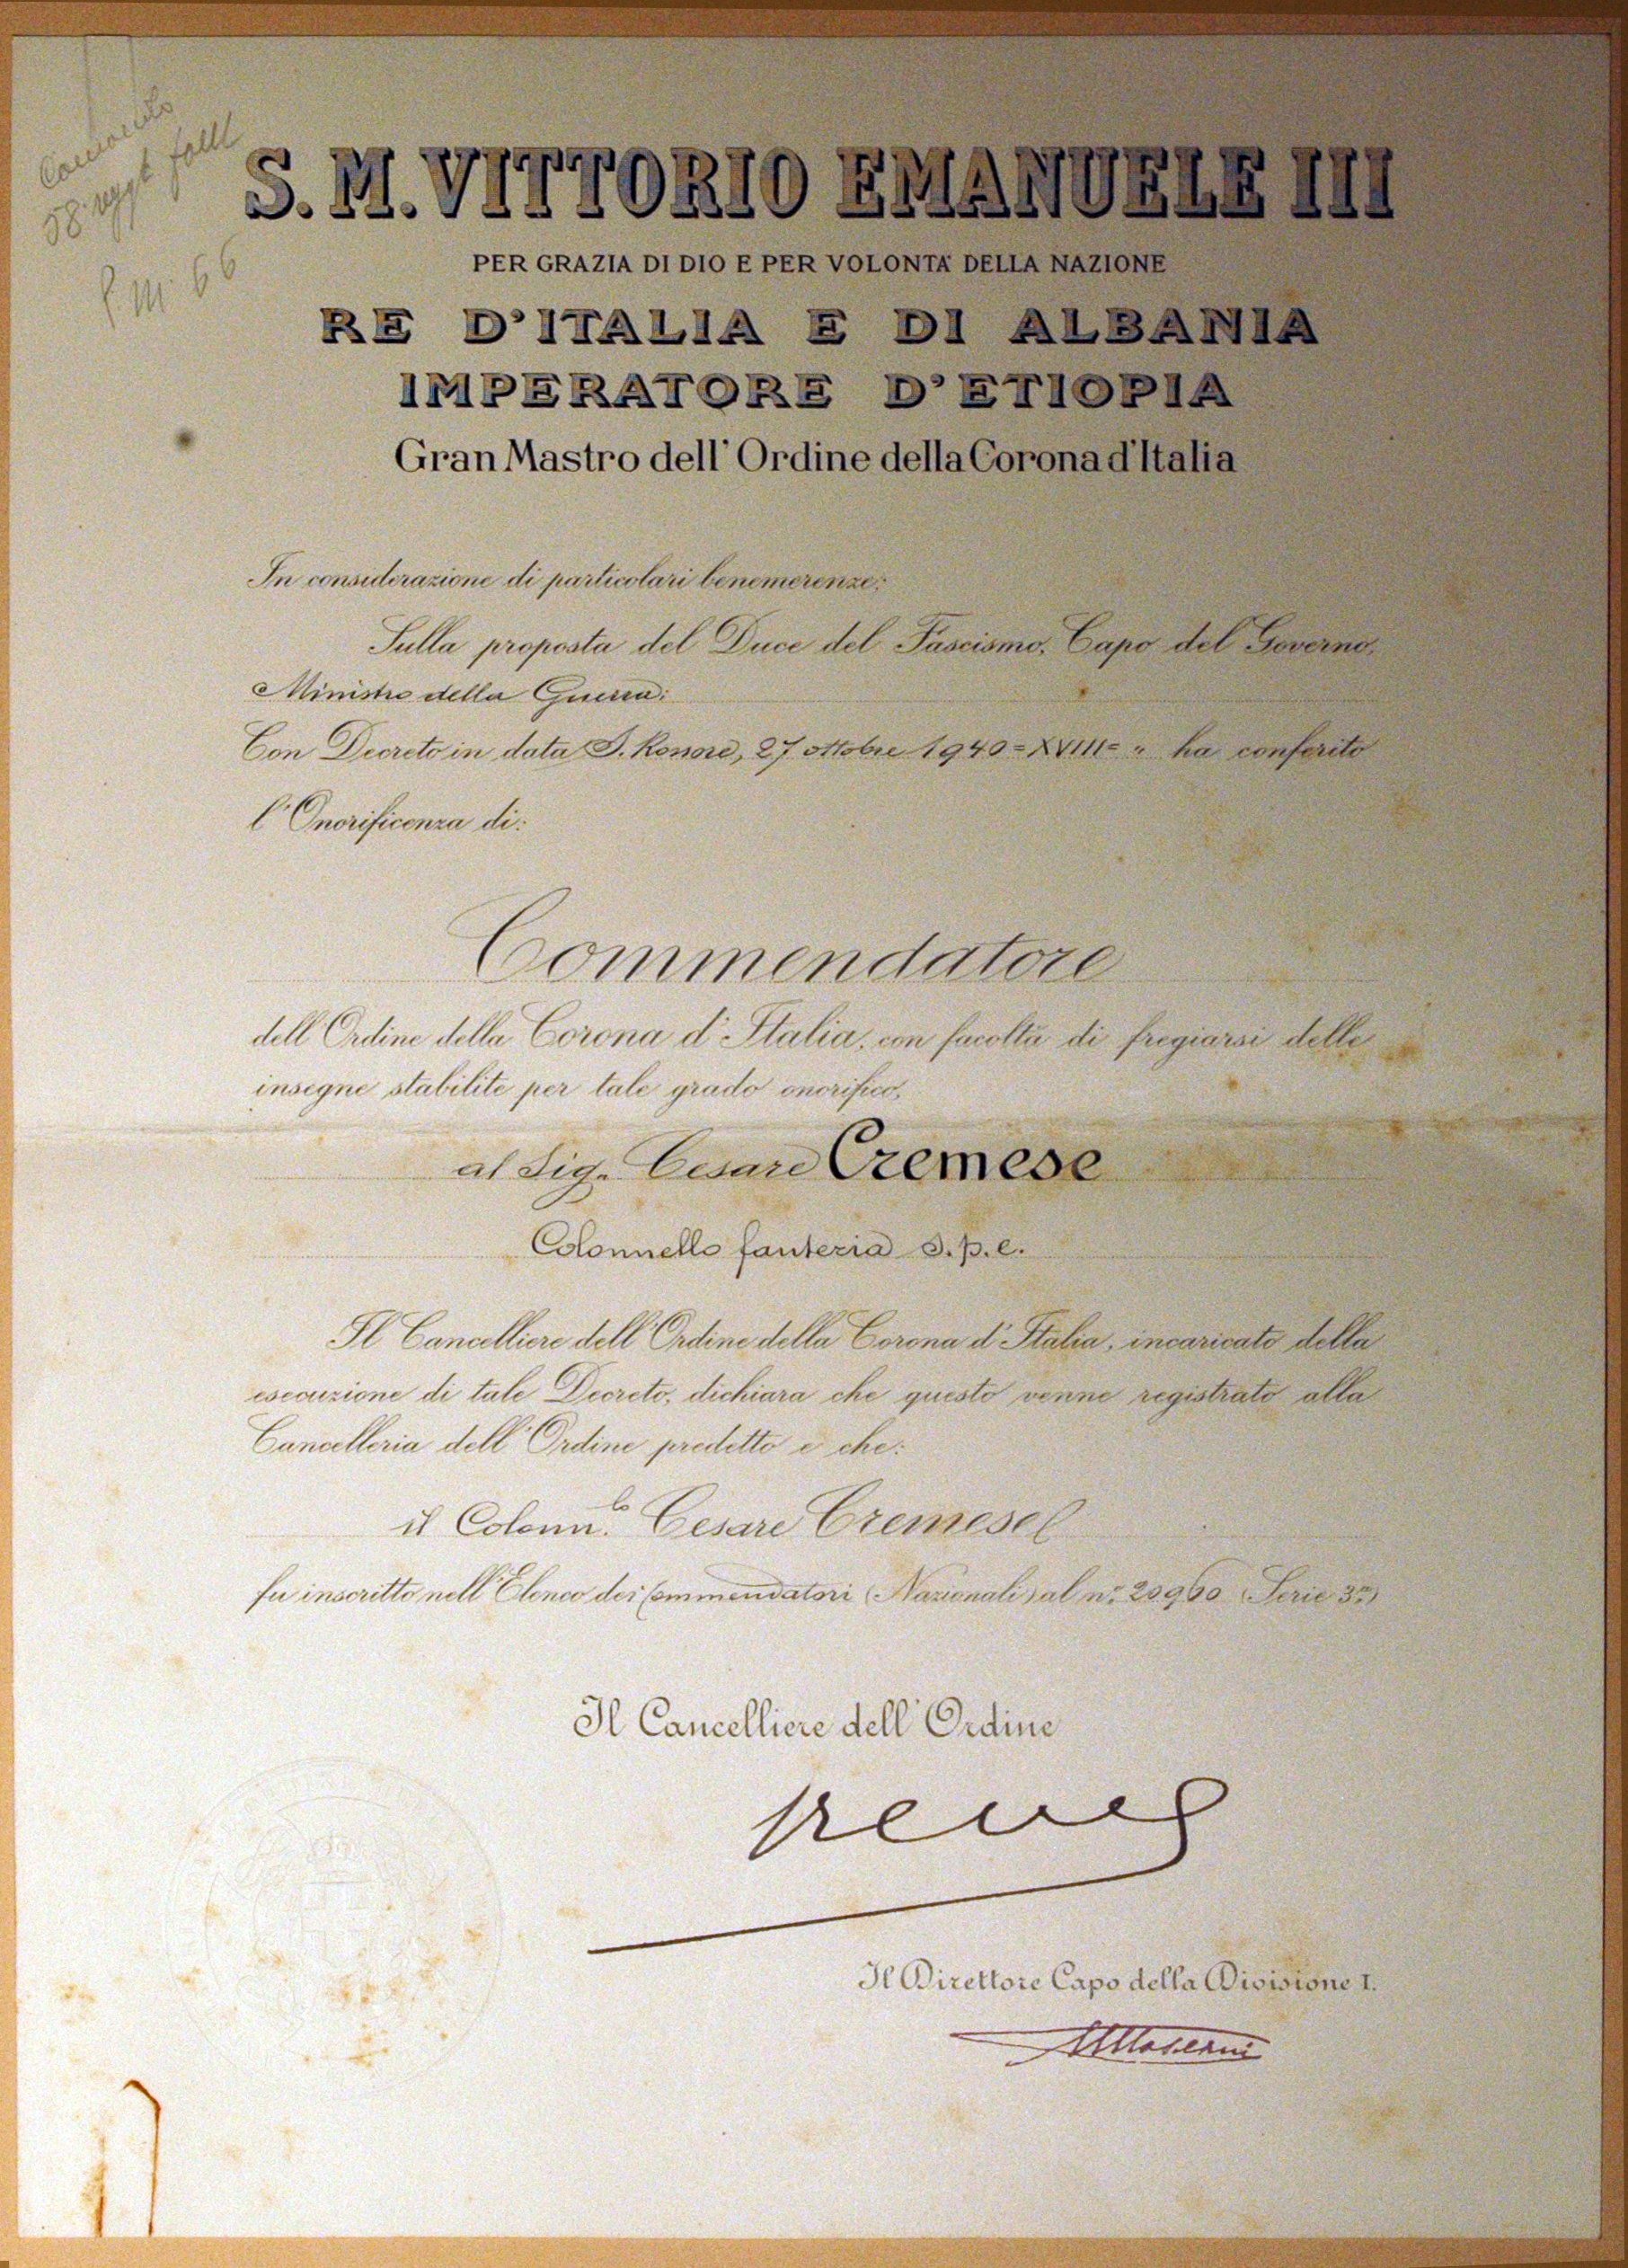 Comando
58° regg.t fant
P.M. 66
S. M. VITTORIO EMANUELE III
PER GRAZIA DI DIO E PER VOLONTÀ DELLA NAZIONE
RE D'ITALIA E DI ALBANIA
IMPERATORE D'ETIOPIA
Gran Mastro dell' Ordine della Corona d'Italia
In considerazione di particolari benemerenze;
Sulla proposta del Duce del Fascismo, Capo del Governo,
Ministro della Guerra;
Con Decreto in data S. Rossore, 27 ottobre 1940=XVIII= " ha conferito
l'Onorificenza di:
Commendatore
dell'Ordine della Corona d'Italia, con facoltà di fregiarsi delle
insegne stabilite per tale grado onorifico,
al Sig. Cesare Cremese
Colonnello fanteria s.p.e.
Il Cancelliere dell'Ordine della Corona d'Italia, incaricato della
esecuzione di tale Decreto, dichiara che questo venne registrato alla
Cancelleria dell'Ordine predetto e che:
il Colonn.lo Cesare Cremese
fu inscritto nell'Elenco dei Commendatori (Nazionali) al n.° 20960 (Serie 3ª)
Il Cancelliere dell' Ordine
Il Direttore Capo della Divisione I.